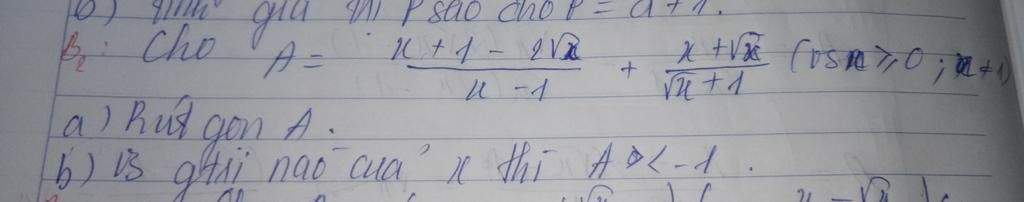 b) Tính giá trị P sao cho P = a + 1.
B2: Cho A = (x + 1 - 2√x)/(x - 1) + (x + √x)/(√x + 1) (với x ≥ 0; x ≠ 1)
a) Rút gọn A.
b) Với gtrị nào của x thì A < -1.
x - √x